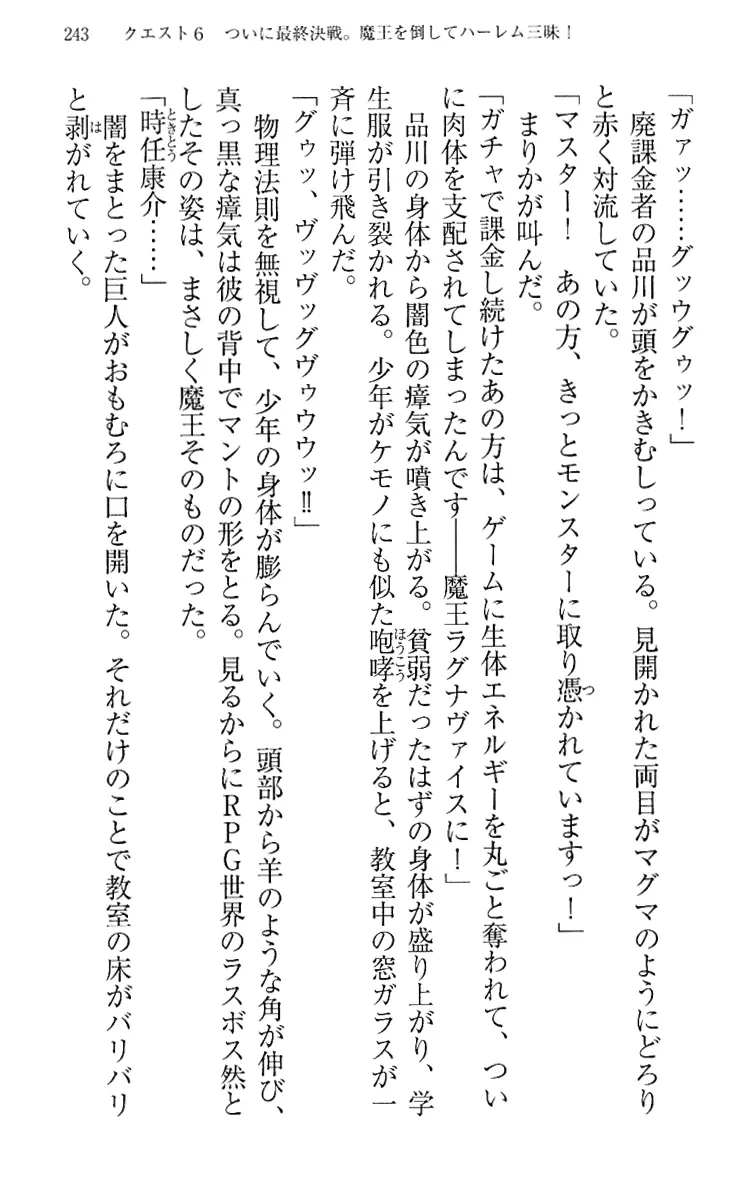 243　クエスト６　ついに最終決戦。魔王を倒してハーレム三昧！
「ガァッ……グッウグゥッ！」
　廃課金者の品川が頭をかきむしっている。見開かれた両目がマグマのようにどろり
と赤く対流していた。
「マスター！　あの方、きっとモンスターに取り憑かれていますっ！」
　まりかが叫んだ。
「ガチャで課金し続けたあの方は、ゲームに生体エネルギーを丸ごと奪われて、つい
に肉体を支配されてしまったんです――魔王ラグナヴァイスに！」
　品川の身体から闇色の瘴気が噴き上がる。貧弱だったはずの身体が盛り上がり、学
生服が引き裂かれる。少年がケモノにも似た咆哮を上げると、教室中の窓ガラスが一
斉に弾け飛んだ。
「グゥッ、ヴッヴッグヴゥウウッ‼」
　物理法則を無視して、少年の身体が膨らんでいく。頭部から羊のような角が伸び、
真っ黒な瘴気は彼の背中でマントの形をとる。見るからにＲＰＧ世界のラスボス然と
したその姿は、まさしく魔王そのものだった。
「時任康介……」
　闇をまとった巨人がおもむろに口を開いた。それだけのことで教室の床がバリバリ
と剥がれていく。